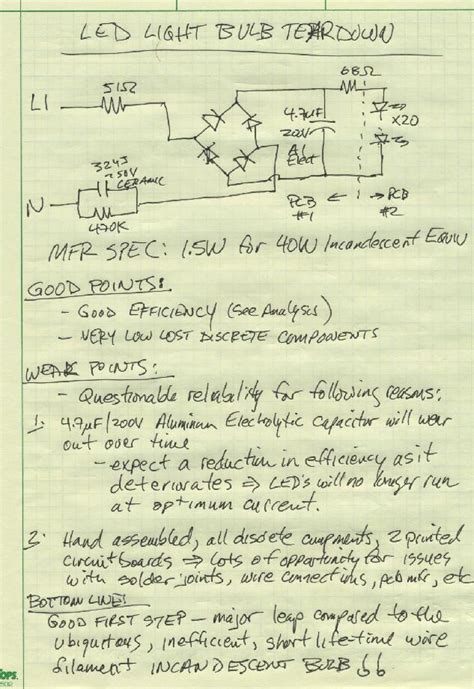 LED LIGHT BULB TEARDOWN
68Ω
L1
51Ω
4.7µF
200V
Al
Elect
X20
324J
250V
CERAMIC
N
470K
PCB #1
PCB #2
MFR SPEC: 1.5W for 40W Incandescent Equiv
GOOD POINTS:
- GOOD EFFICIENCY (See Analysis)
- VERY LOW COST DISCRETE COMPONENTS
WEAK POINTS:
- Questionable reliability for following reasons:
1. 4.7µF/200V Aluminum Electrolytic capacitor will wear
out over time
- expect a reduction in efficiency as it
deteriorates ⇒ LED's will no longer run
at optimum current.
2. Hand assembled, all discrete components, 2 printed
circuit boards ⇒ Lots of opportunity for issues
with solder joints, wire connections, pcb mfr, etc
BOTTOM LINE:
GOOD FIRST STEP - major leap compared to the
ubiquitous, inefficient, short life-time wire
filament INCANDESCENT BULB !!
TOPS.